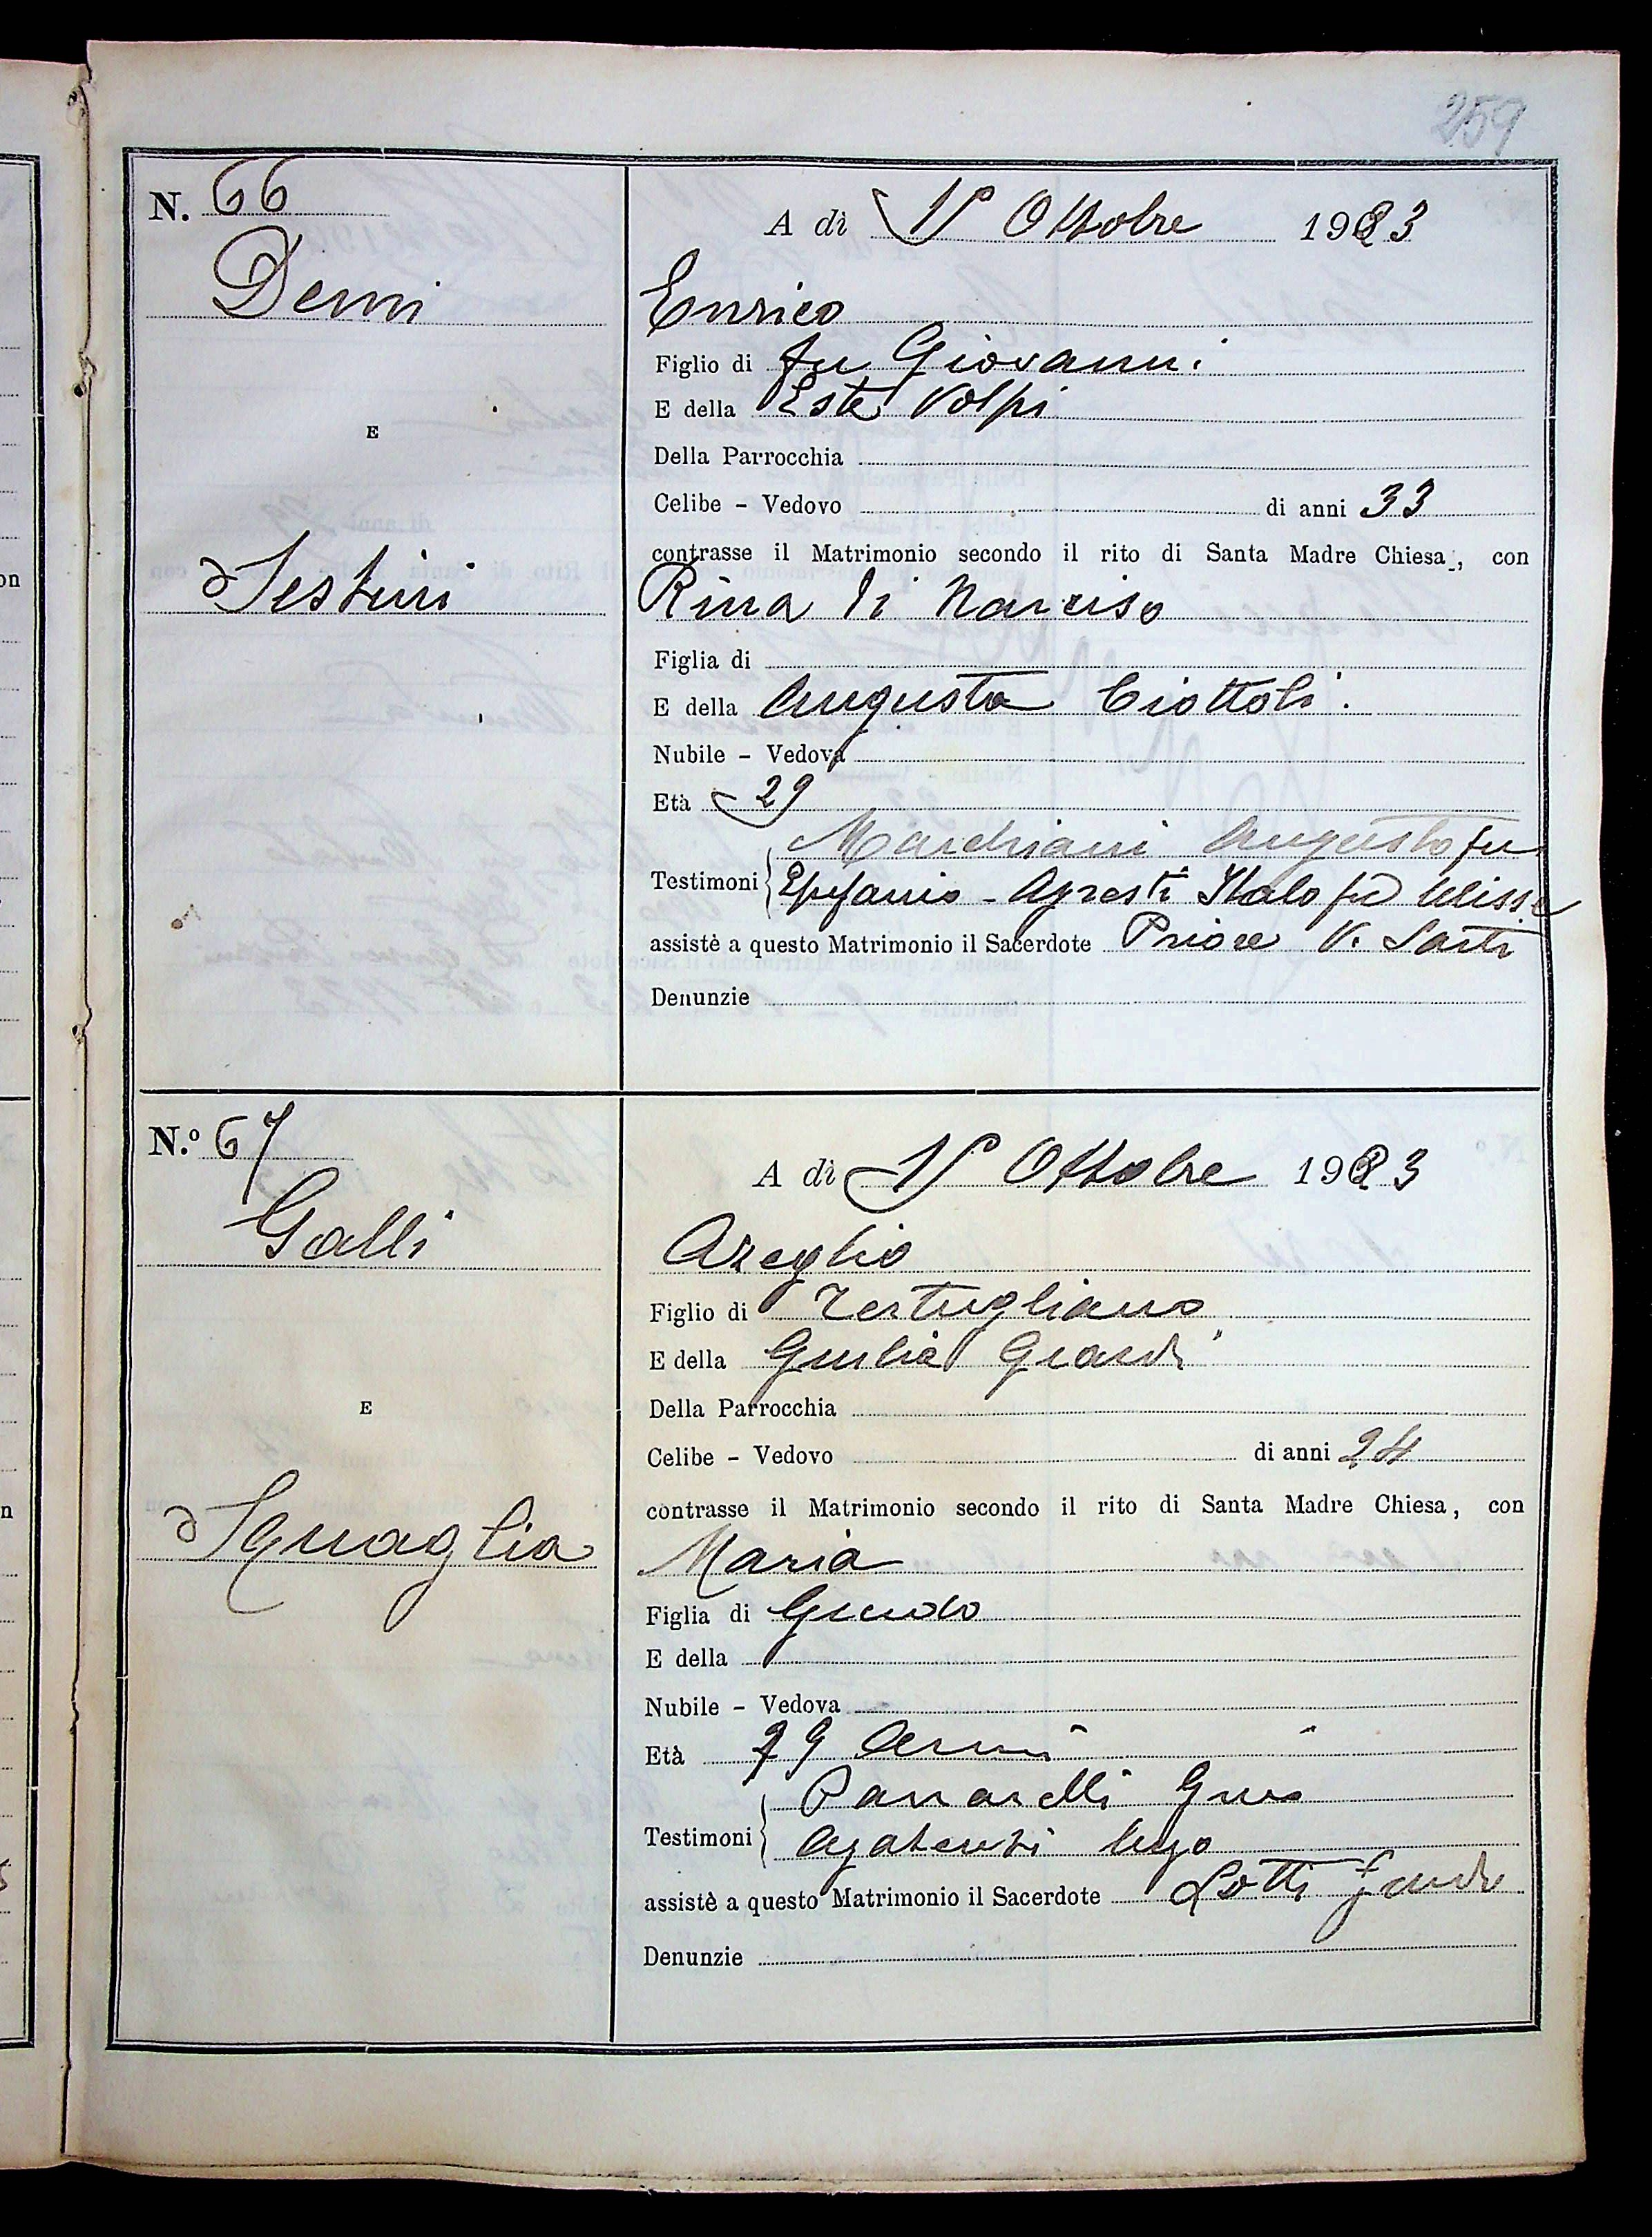 259
N. 66
A dì 1º Ottobre 1923
Demi
Enrico
Figlio di fu Giovanni
E della Ester Volpi
E
Della Parrocchia
Celibe - Vedovo di anni 33
contrasse il Matrimonio secondo il rito di Santa Madre Chiesa, con
Testini
Rina di Narciso
Figlia di
E della Augusta Ciottoli.
Nubile - Vedova
Età 29
Augusto fu
Testimoni Epifanio - Agresti Italo fu Ulisse
assistè a questo Matrimonio il Sacerdote Priore V. Sarti
Denunzie
N.º 67
A dì 1º Ottobre 1923
Galli
Azeglio
Figlio di Tertugliano
E della Giulia
E
Della Parrocchia
Celibe - Vedovo di anni 24
contrasse il Matrimonio secondo il rito di Santa Madre Chiesa, con
Squaglia
Maria
Figlia di Guido
E della
Nubile - Vedova
Età 29 Anni
Pannarelli Gino
Testimoni Ugo
assistè a questo Matrimonio il Sacerdote Lotti
Denunzie